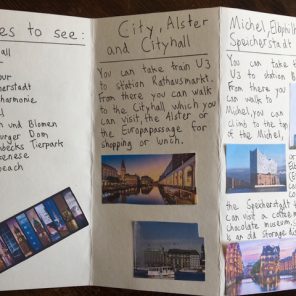 es to see:
all
our
erstadt
harmonie
el
n und Blomen
urger Dom
nbecks Tierpark
kenese
beach
City, Alster
and Cityhall
You can take train U3
to station Rathausmarkt.
From there you can walk
to the Cityhall which you
can visit, the Alster or
the Europapassage for
shopping or lunch.
Michel, Elbphilh
Speicherstadt
You can take th
U3 to station B
From there you
can walk to
Michel, you can
climb to the top
of the Michel,
the Speicherstadt
can visit a coffee m
chocolate museum,
is an old storage dis